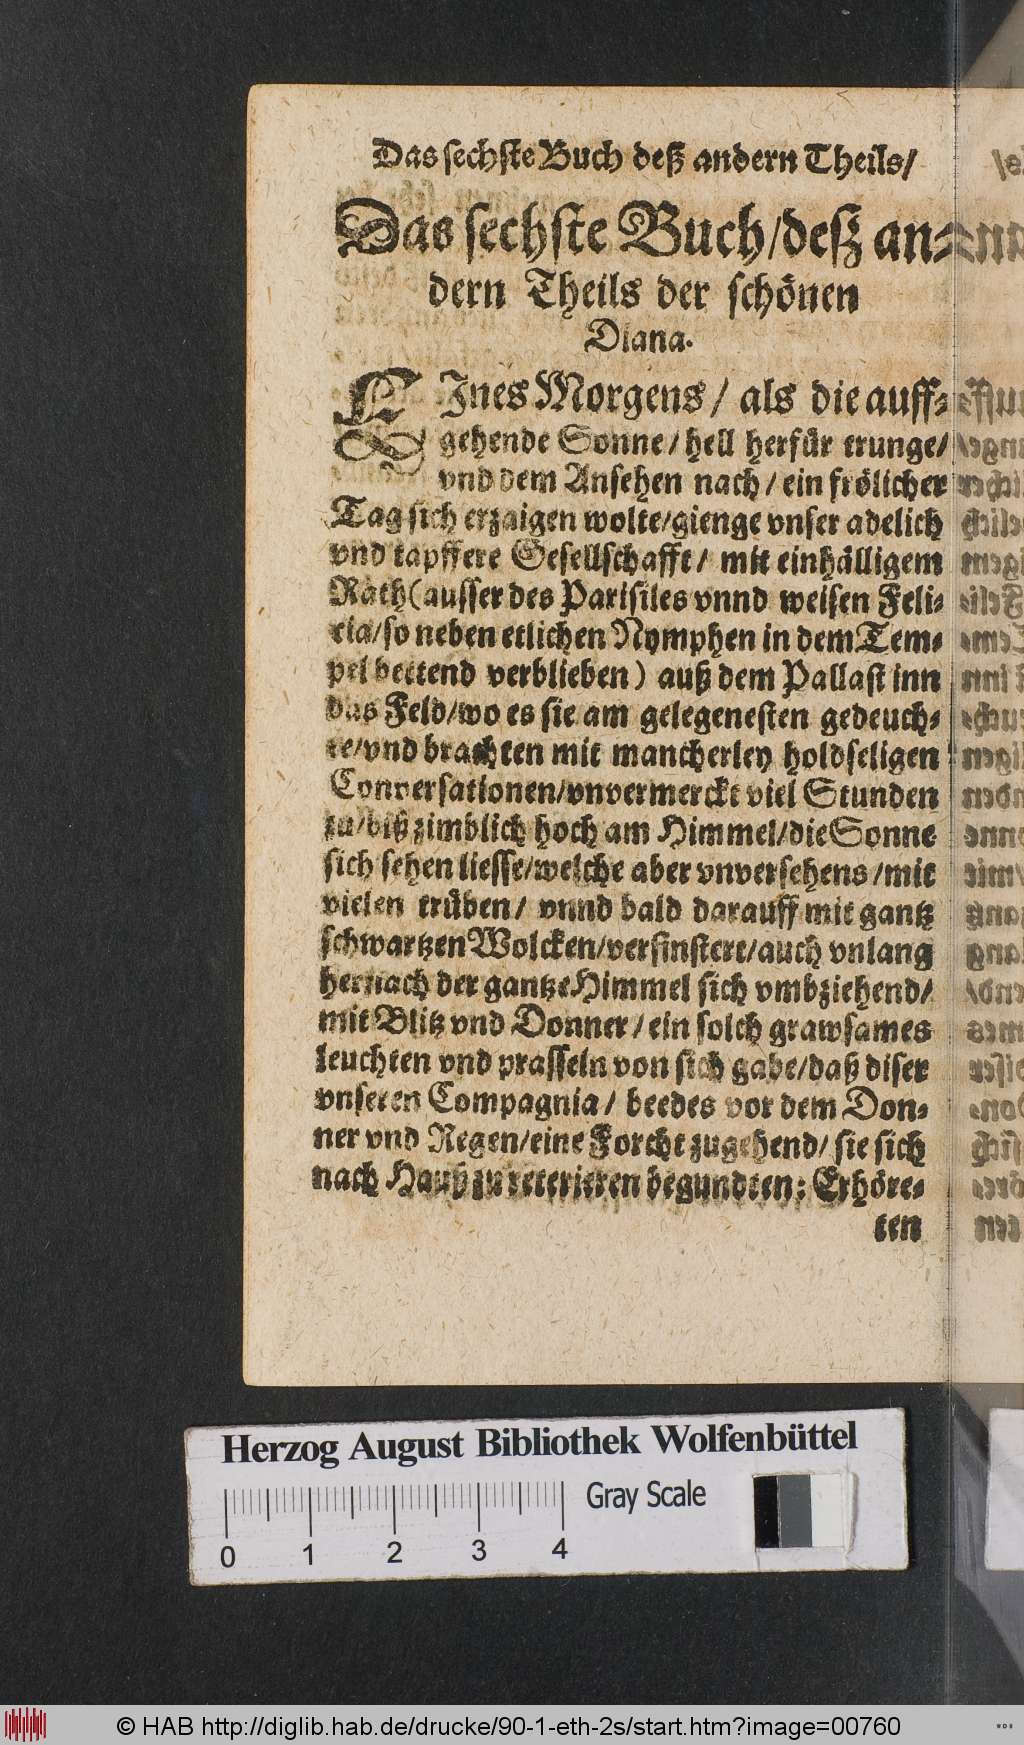 Das sechste Buch deß andern Theils/
Das sechste Buch/deß an-
dern Theils der schönen
Diana.
EInes Morgens/ als die auff-
gehende Sonne/ hell herfür trunge/
vnd dem Ansehen nach/ ein frölicher
Tag sich erzaigen wolte/gienge vnser adelich
vnd tapffere Gesellschafft/ mit einhälligem
Rath(ausser des Parisiles vnnd weisen Feli-
cia/so neben etlichen Nymphen in dem Tem-
pel bettend verblieben) auß dem Pallast inn
das Feld/wo es sie am gelegenesten gedeuch-
te/vnd brachten mit mancherley holdseligen
Conversationen/vnvermerckt viel Stunden
zu/biß zimblich hoch am Himmel/die Sonne
sich sehen liesse/welche aber vnversehens/mit
vielen trüben/ vnnd bald darauff mit gantz
schwartzen Wolcken/versinstert/auch vnlang
hernach der gantze Himmel sich vmbziehend/
mit Blitz vnd Donner/ein solch grawsames
leuchten vnd prasseln von sich gabe/daß diser
vnseren Compagnia/ beedes vor dem Don-
ner vnd Regen/eine Forcht zugehend/ sie sich
nach Hauß zu reterieren begundten: Erhöre-
ten
Herzog August Bibliothek Wolfenbüttel
Gray Scale
0 1 2 3 4
© HAB http://diglib.hab.de/drucke/90-1-eth-2s/start.htm?image=00760